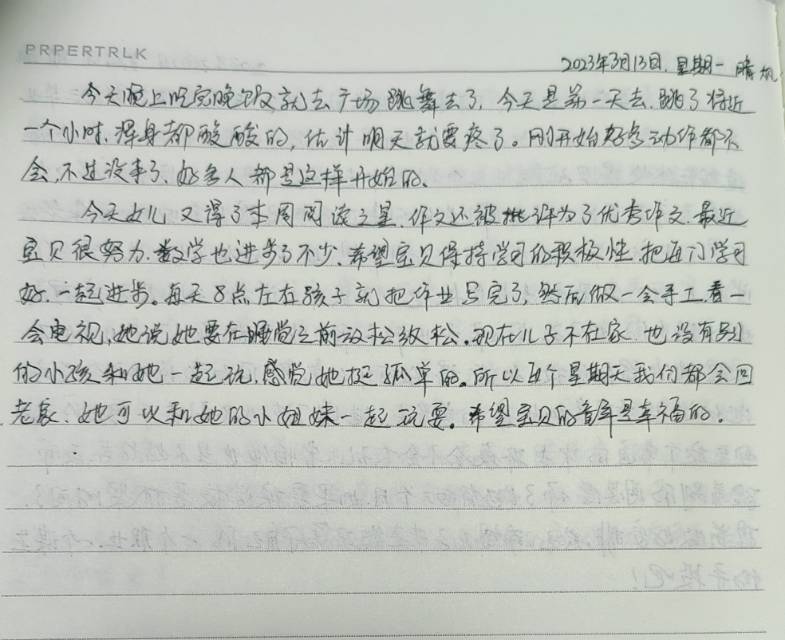 PRPERTRLK
2023年3月13日，星期一 晴
今天晚上吃完晚饭就去广场跳舞去了，今天是第一天去，跳了将近
一个小时，浑身都酸酸的，估计明天就要疼了。刚开始好多动作都不
会，不过没事了，好多人都是这样开始的。
今天女儿又得了本周阅读之星，作文还被批评为了优秀作文，最近
宝贝很努力，数学也进步了不少，希望宝贝保持学习的积极性，把每门学习
好，一起进步。每天8点左右孩子就把作业写完了，然后做一会手工，看一
会电视，她说她要在睡觉之前放松放松。现在儿子不在家，也没有别
的小孩和她一起玩，感觉她挺孤单的。所以每个星期天我们都会回
老家，她可以和她的小姐妹一起玩耍。希望宝贝的童年是幸福的。